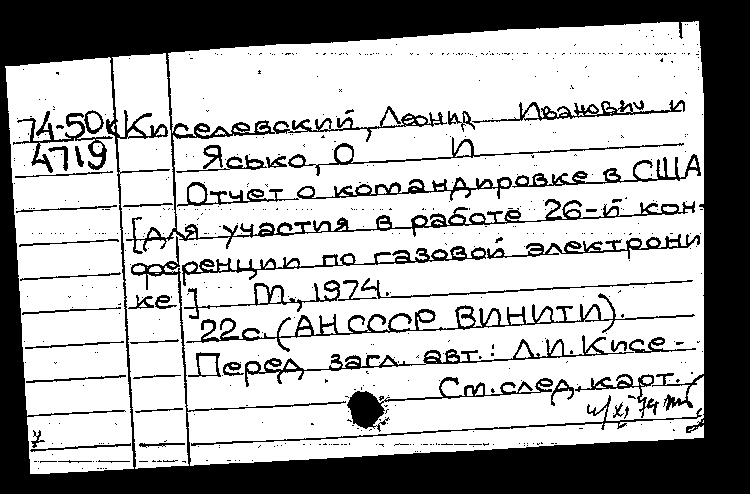 74-50к Киселевский, Леонид Иванович и
4719 Ясько, О И
Отчет о командировке в США
[для участия в работе 26-й кон-
ференции по газовой электрони
ке]. М., 1974.
22с. (АН СССР. ВИНИТИ).
Перед загл. авт.: Л.И. Кисе-
См. след. карт.